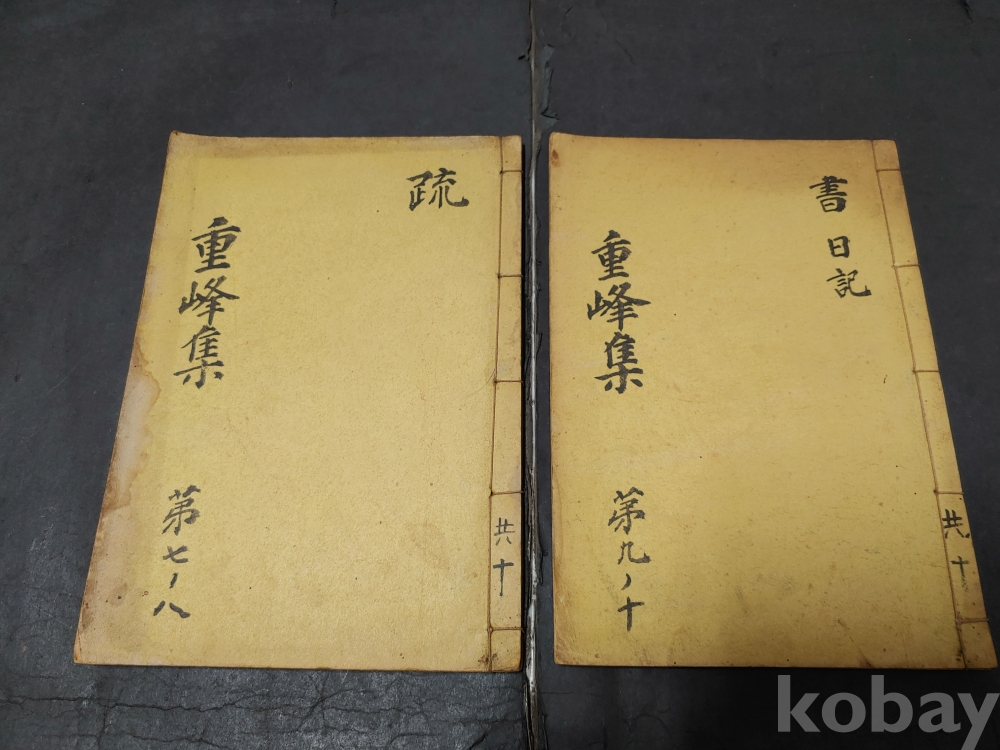 疏
重峰集
第七ノ八
共十
書 日記
重峰集
第九ノ十
共十
kobay